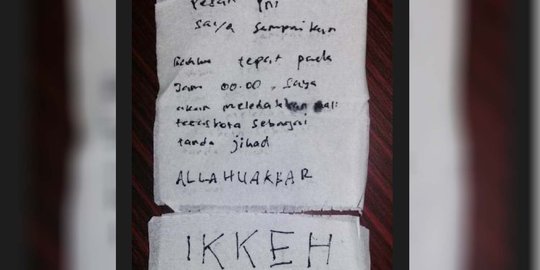 Pesan ini
saya sampaikan
Bahwa tepat pada
Jam 00.00, saya
akan meledakkan Bali
teruskota sebagai
tanda jihad
ALLAHUAKBAR
IKKEH